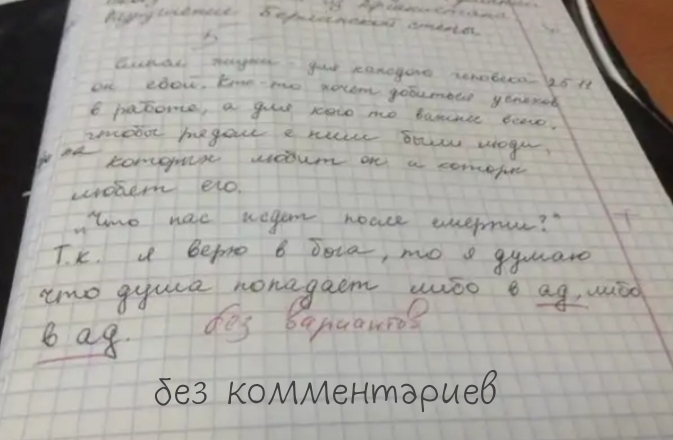 Разрушение Берлинской стены
Смысл жизни - для каждого человека 25 11
он свой. Кто-то хочет добиться успехов
в работе, а для кого то важнее всего,
чтобы рядом с ним были люди,
которых любит он и которые
любят его.
"Что нас ждет после смерти?"
Т.к. я верю в бога, то я думаю
что душа попадает либо в ад, либо
в ад. без вариантов
без комментариев